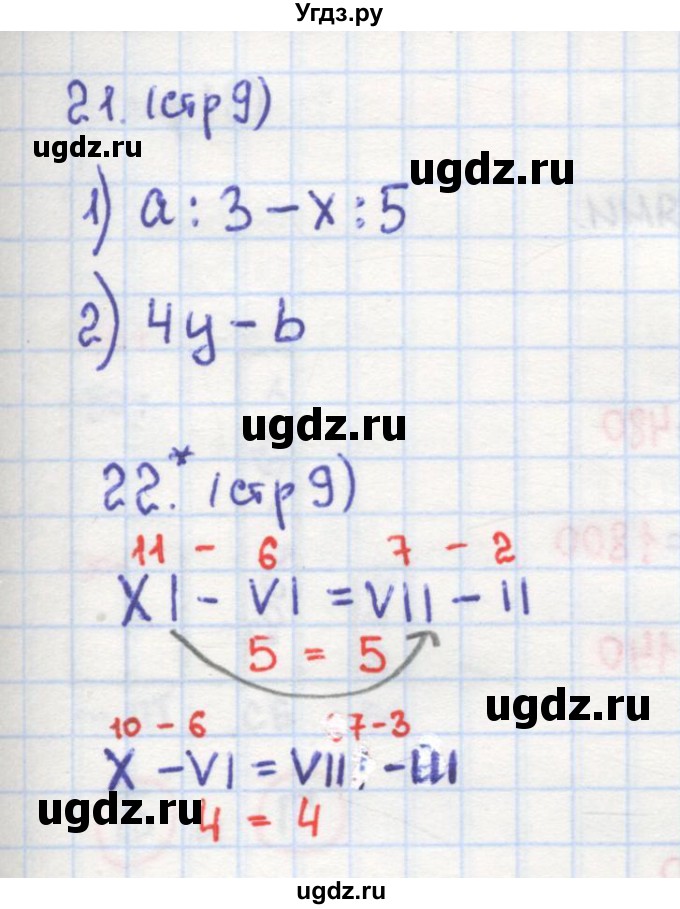 Угдз.ру
21. (стр 9)
ugdz.ru
ugdz.ru
1) a : 3 - x : 5
2) 4y - b
ugdz.ru
22.* (стр 9)
11 - 6 7 - 2
XI - VI = VII - II
5 = 5
ugdz.ru
10 - 6 7 - 3
X - VI = VII - III
ugdz.ru
4 = 4
ugdz.ru
ugdz.ru